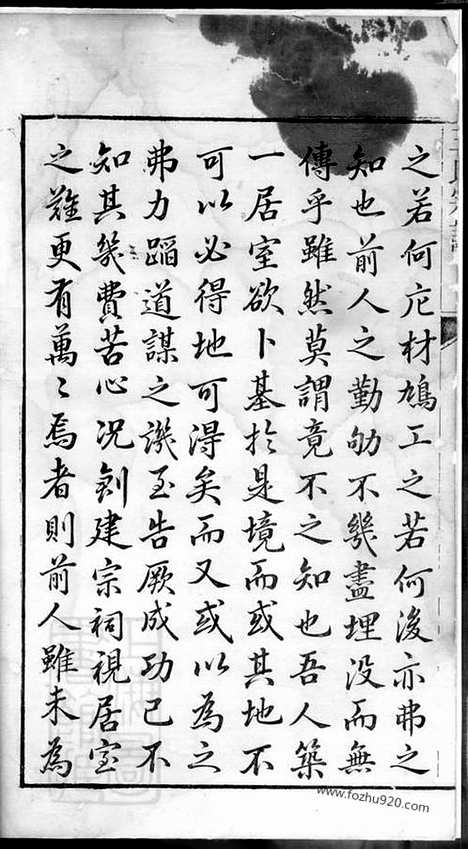 之若何庀材鳩工之若何後亦弗之
知也前人之勤劬不幾盡埋没而無
傳乎雖然莫謂竟不之知也吾人築
一居室欲卜基扵是境而或其地不
可以必得地可得矣而又或以為之
弗力蹈道謀之譏至告厥成功已不
知其幾費苦心况創建宗祠視居室
之難更有萬〻焉者則前人雖未為
www.fozhu920.com